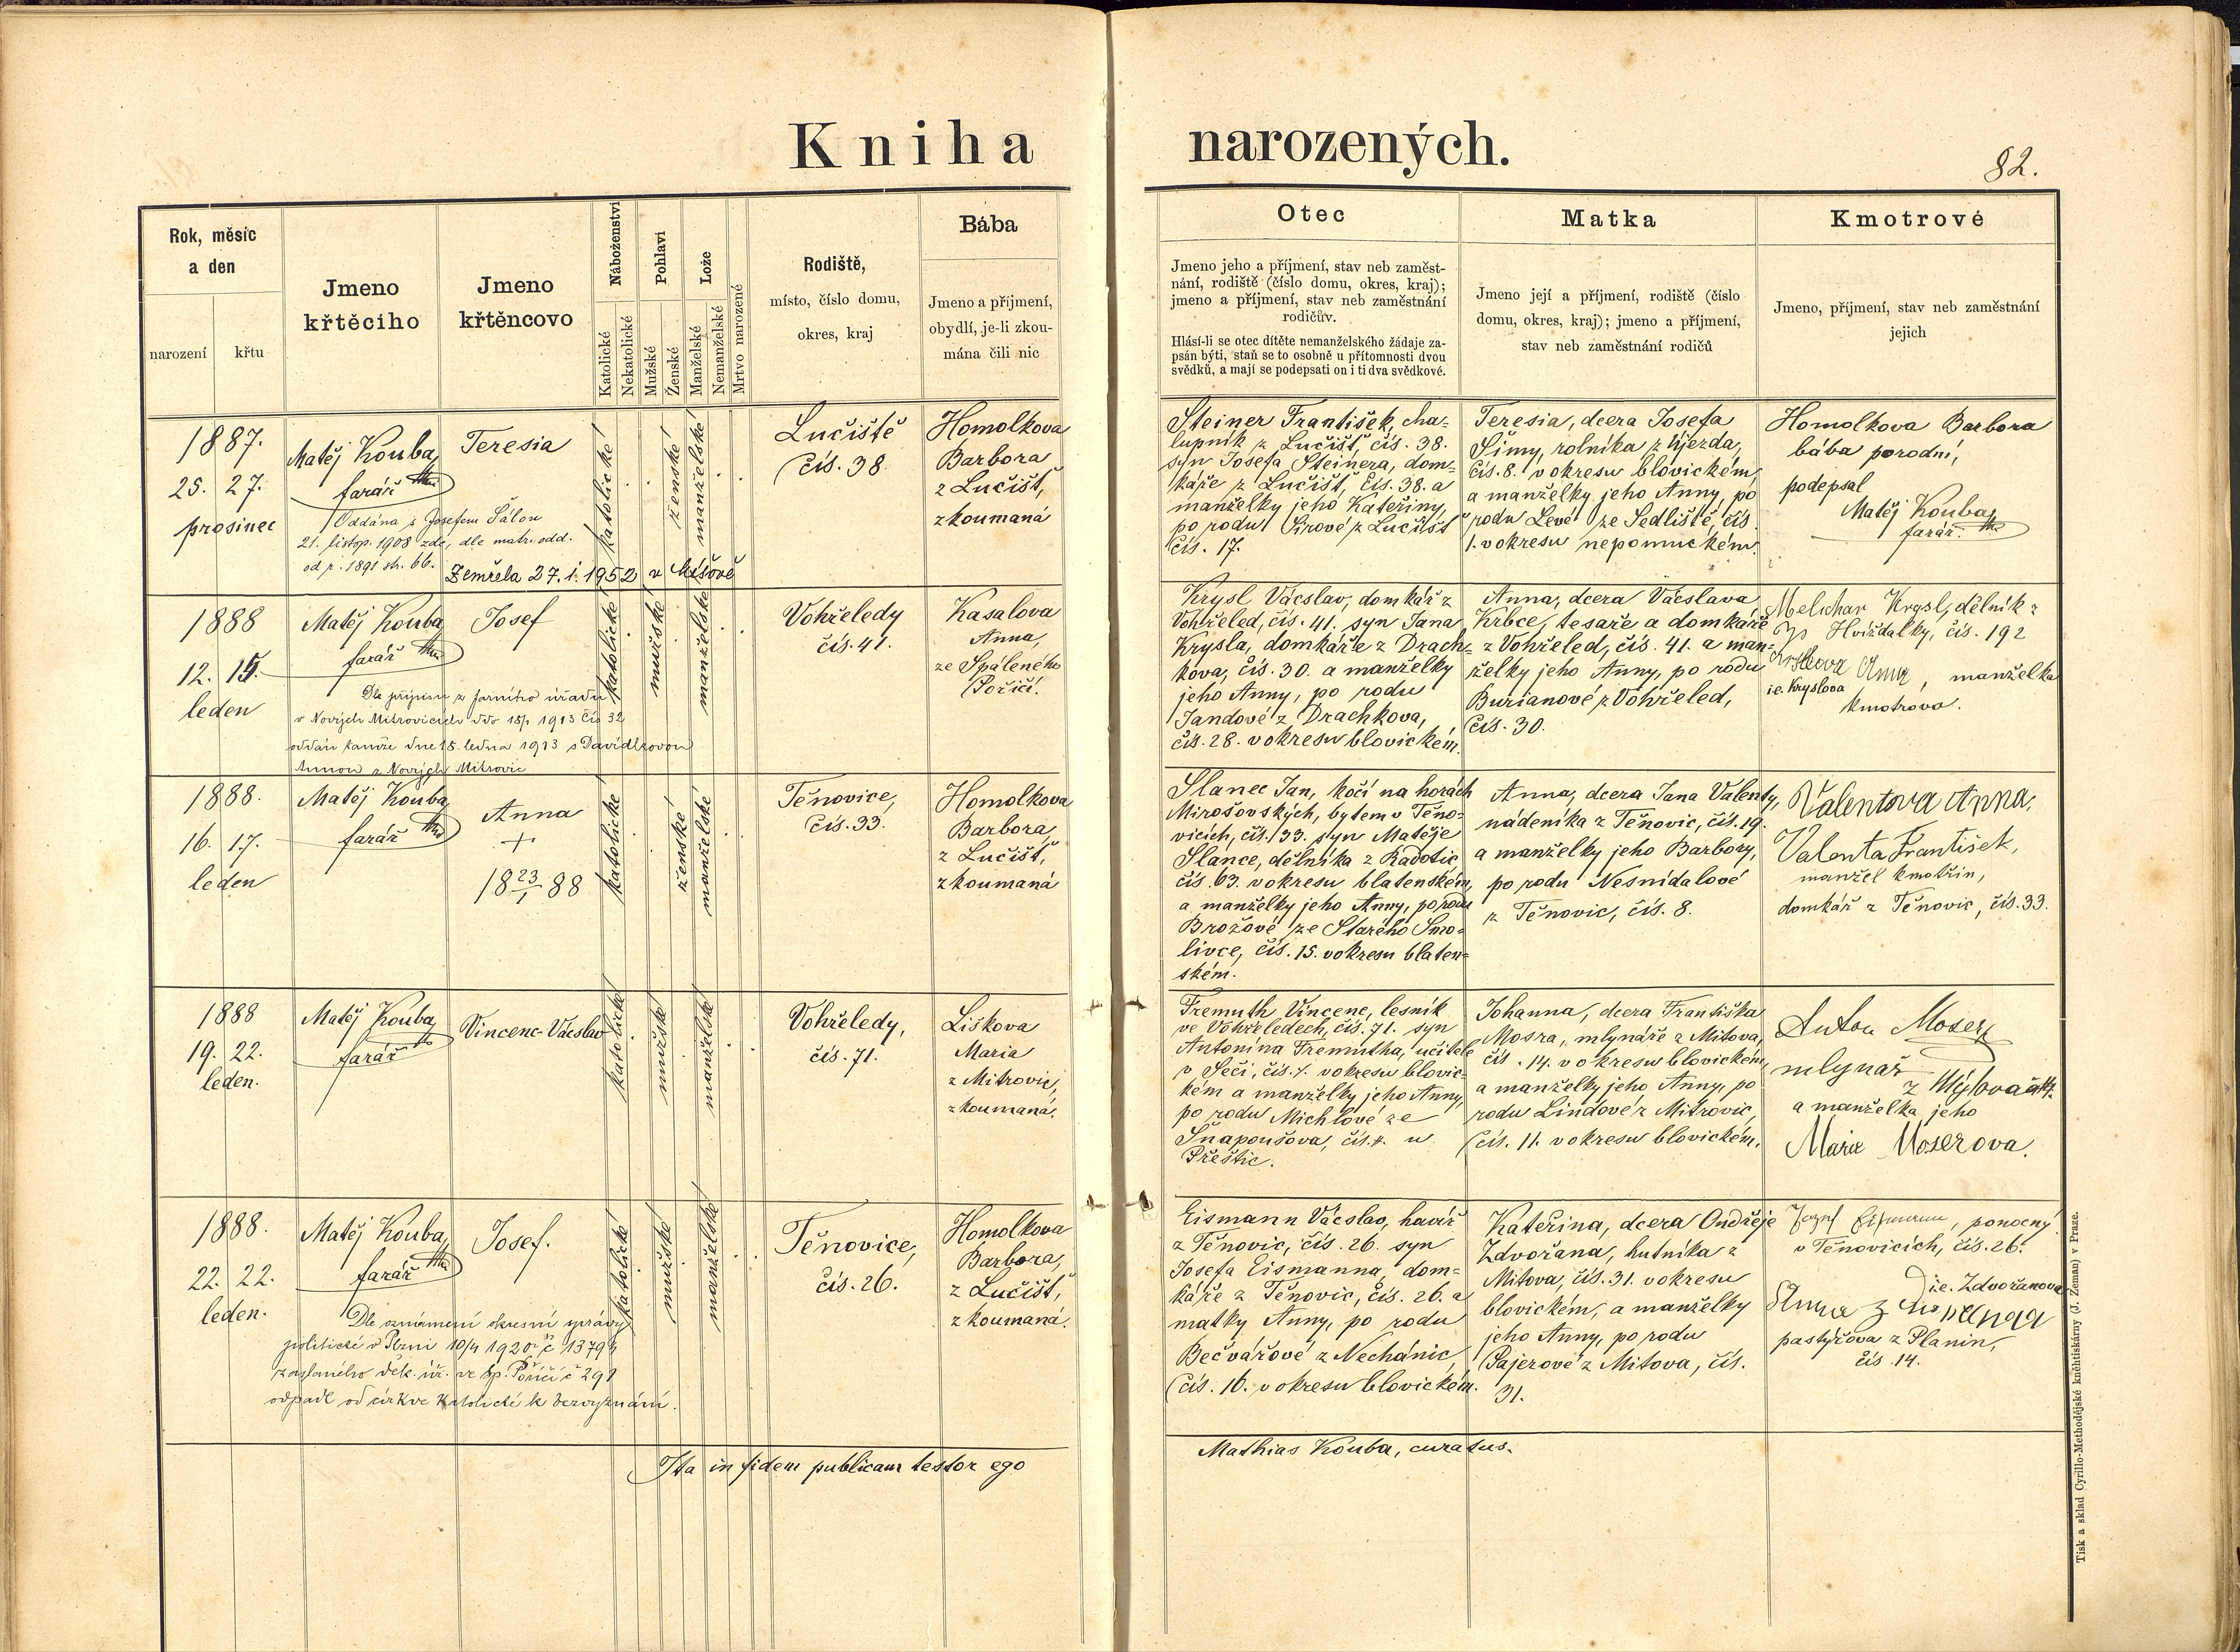 Kniha narozených.
82.
Rok, měsíc
a den
narození
křtu
Jmeno
křtěcího
Jmeno
křtěncovo
Náboženství
Katolické
Nekatolické
Pohlaví
Mužské
Ženské
Lože
Manželské
Nemanželské
Mrtvo narozené
Rodiště,
místo, číslo domu,
okres, kraj
Bába
Jmeno a příjmení,
obydlí, je-li zkou-
mána čili nic
Otec
Jmeno jeho a příjmení, stav neb zaměst-
nání, rodiště (číslo domu, okres, kraj);
jmeno a příjmení, stav neb zaměstnání
rodičův.
Hlásí-li se otec dítěte nemanželského žádaje za-
psán býti, staň se to osobně u přítomnosti dvou
svědků, a mají se podepsati on i ti dva svědkové.
Matka
Jmeno její a příjmení, rodiště (číslo
domu, okres, kraj); jmeno a příjmení,
stav neb zaměstnání rodičů
Kmotrové
Jmeno, příjmení, stav neb zaměstnání
jejich
1887.
25. 27.
prosinec
Matěj Kouba,
farář
Teresia
Oddána s Josefem Šálou
21. listop. 1908 zde, dle matr. odd.
od r. 1891 str. 66.
Zemřela 27. 1. 1952 v Míšově
katolické
ženské
manželské
Lučiště
čís. 38.
Homolkova
Barbora
z Lučišť,
zkoumaná
Steiner František, cha-
lupník z Lučišť, čís. 38.
syn Josefa Steinera, dom-
káře z Lučišť, čís. 38. a
manželky jeho Kateřiny,
po rodu Sirové z Lučišť
čís. 17.
Teresia, dcera Josefa
Šimy, rolníka z Újezda,
čís. 8. v okresu blovickém,
a manželky jeho Anny, po
rodu Levé ze Sedliště, čís.
1. v okresu nepomuckém.
Homolkova Barbora
bába porodní,
podepsal
Matěj Kouba,
farář.
1888
12. 15.
leden
Matěj Kouba
farář
Josef
Dle přípisu z farního úřadu
v Nových Mitrovicích ddo 18/1 1913 čís 32
oddán tamže dne 18. ledna 1913 s Davídkovou
Annou z Nových Mitrovic
katolické
mužské
manželské
Vohřeledy
čís. 41.
Kasalova
Anna,
ze Spáleného
Poříčí.
Krysl Václav, domkář z
Vohřeled, čís. 41. syn Jana
Krysla, domkáře z Drach-
kova, čís. 30. a manželky
jeho Anny, po rodu
Jandové z Drachkova,
čís. 28. v okresu blovickém.
Anna, dcera Václava
Krbce, tesaře a domkáře
z Vohřeled, čís. 41. a man-
želky jeho Anny, po rodu
Burianové z Vohřeled,
čís. 30.
Melichar Krysl, dělník z
Hvížďalky, čís. 192
Anna, manželka
i.e. Kryslova
kmotrova.
1888.
16. 17.
leden
Matěj Kouba
farář
Anna
+
18 23/1 88
katolické
ženské
manželské
Těnovice,
čís. 33.
Homolkova
Barbora,
z Lučišť,
zkoumaná
Slanec Jan, kočí na horách
Mirošovských, bytem v Těno-
vicích, čís. 33. syn Matěje
Slance, dělníka z Radošic
čís. 63. v okresu blatenském,
a manželky jeho Anny, po rodu
Brožové ze Starého Smo-
livce, čís. 15. v okresu blaten-
ském.
Anna, dcera Jana Valenty,
nádeníka z Těnovic, čís. 19.
a manželky jeho Barbory,
po rodu Nesnídalové
z Těnovic, čís. 8.
Valentova Anna,
Valenta František,
manžel kmotřin,
domkář z Těnovic, čís. 33.
1888
19. 22.
leden.
Matěj Kouba,
farář
Vincenc-Václav
katolické
mužské
manželské
Vohřeledy,
čís. 71.
Liškova
Maria
z Mitrovic,
zkoumaná.
Fremuth Vincenc, lesník
ve Vohřeledech, čís. 71. syn
Antonína Fremutha, učitele
v Seči, čís. 7. v okresu blovic-
kém a manželky jeho Anny,
po rodu Michlové ze
Snapoušova, čís. 4. u
Přeštic.
Johanna, dcera Františka
Mosra, mlynáře z Mitova,
čís. 14. v okresu blovickém,
a manželky jeho Anny, po
rodu Lindové z Mitrovic,
čís. 11. v okresu blovickém.
Anton Moser
mlynář
z
a manželka jeho
Marie Moserova.
1888.
22. 22.
leden.
Matěj Kouba,
farář
Josef.
Dle oznámení okresní správy
politické v Plzni 10/4 1920 č 13794
zaslaného děk. úř. ve Sp. Poříčí č 291
odpadl od církve katolické k bezvyznání.
katolické
mužské
manželské
Těnovice,
čís. 26.
Homolkova
Barbora,
z Lučišť,
zkoumaná.
Eismann Václav, havíř
z Těnovic, čís. 26. syn
Josefa Eismanna, dom-
káře z Těnovic, čís. 26. a
matky Anny, po rodu
Bečvářové z Nechánic,
čís. 16. v okresu blovickém.
Kateřina, dcera Ondřeje
Zdvořana, hutníka z
Mitova, čís. 31. v okresu
blovickém, a manželky
jeho Anny, po rodu
Pajerové z Mitova, čís.
31.
Josef Eismann, ponocný
v Těnovicích, čís. 26.
i.e. Zdvořanova
Anna
pastýřova z Planin,
čís. 14.
Ita in fidem publicam testor ego
Mathias Kouba, curatus.
Tisk a sklad Cyrillo-Methodějské knihtiskárny (J. Zeman) v Praze.